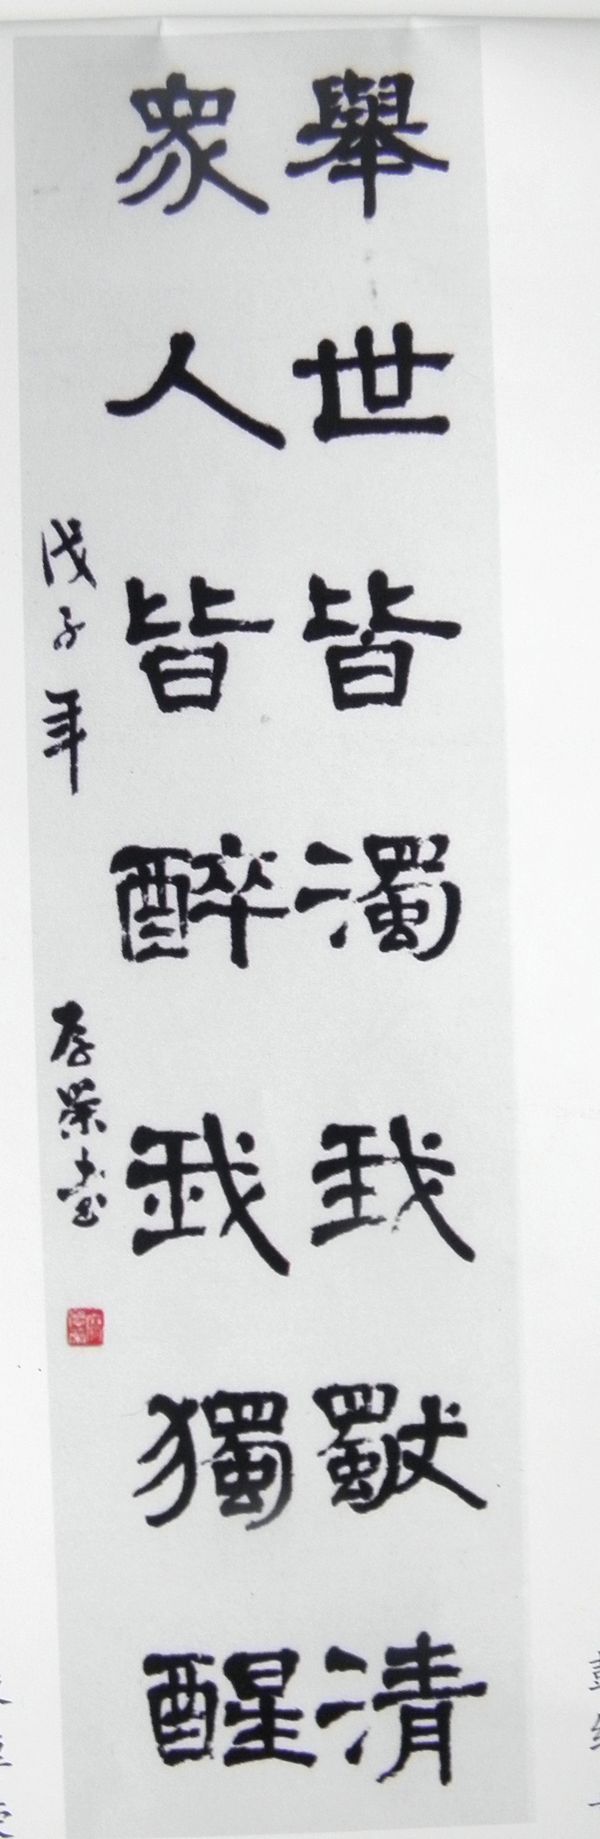 舉世皆濁我獨清
衆人皆醉我獨醒
戊子年 存榮書